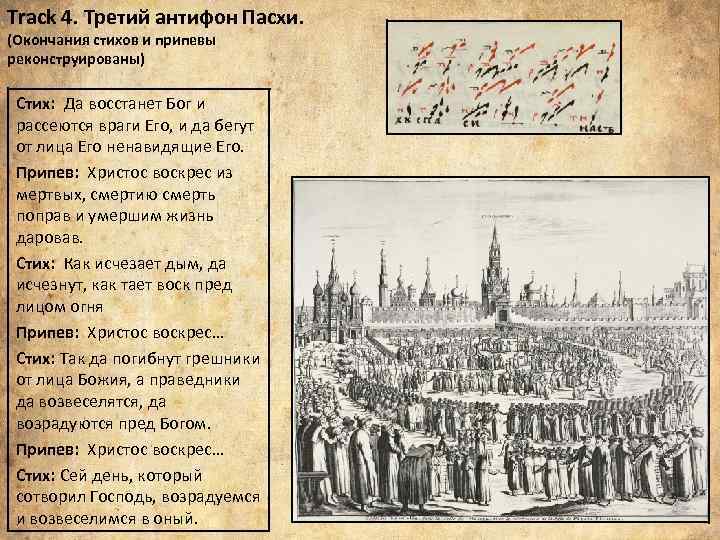 Track 4. Третий антифон Пасхи.
(Окончания стихов и припевы
реконструированы)
Стих: Да восстанет Бог и
рассеются враги Его, и да бегут
от лица Его ненавидящие Его.
Припев: Христос воскрес из
мертвых, смертию смерть
поправ и умершим жизнь
даровав.
Стих: Как исчезает дым, да
исчезнут, как тает воск пред
лицом огня
Припев: Христос воскрес...
Стих: Так да погибнут грешники
от лица Божия, а праведники
да возвеселятся, да
возрадуются пред Богом.
Припев: Христос воскрес...
Стих: Сей день, который
сотворил Господь, возрадуемся
и возвеселимся в оный.